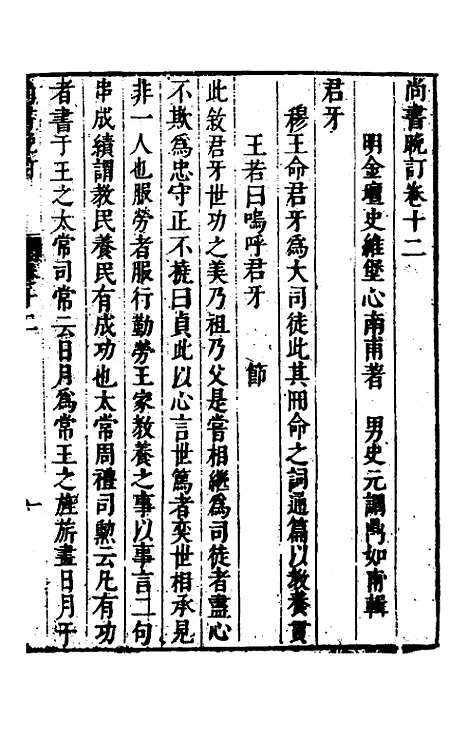 尚書晚訂卷十二
明金壇史維堡心南甫著 男史元調鼎如甫輯
君牙
穆王命君牙為大司徒此其冊命之詞通篇以教養貫
王若曰嗚呼君牙 節
此敘君牙世功之美乃祖乃父是嘗相繼為司徒者盡心
不欺為忠守正不撓曰貞此以心言世篤者奕世相承見
非一人也服勞者服行勤勞王家教養之事以事言二句
串成績謂教民養民有成功也太常周禮司勲云凡有功
者書于王之太常司常云日月為常王之旌旂畫日月于
尚書晚訂 卷十二 一